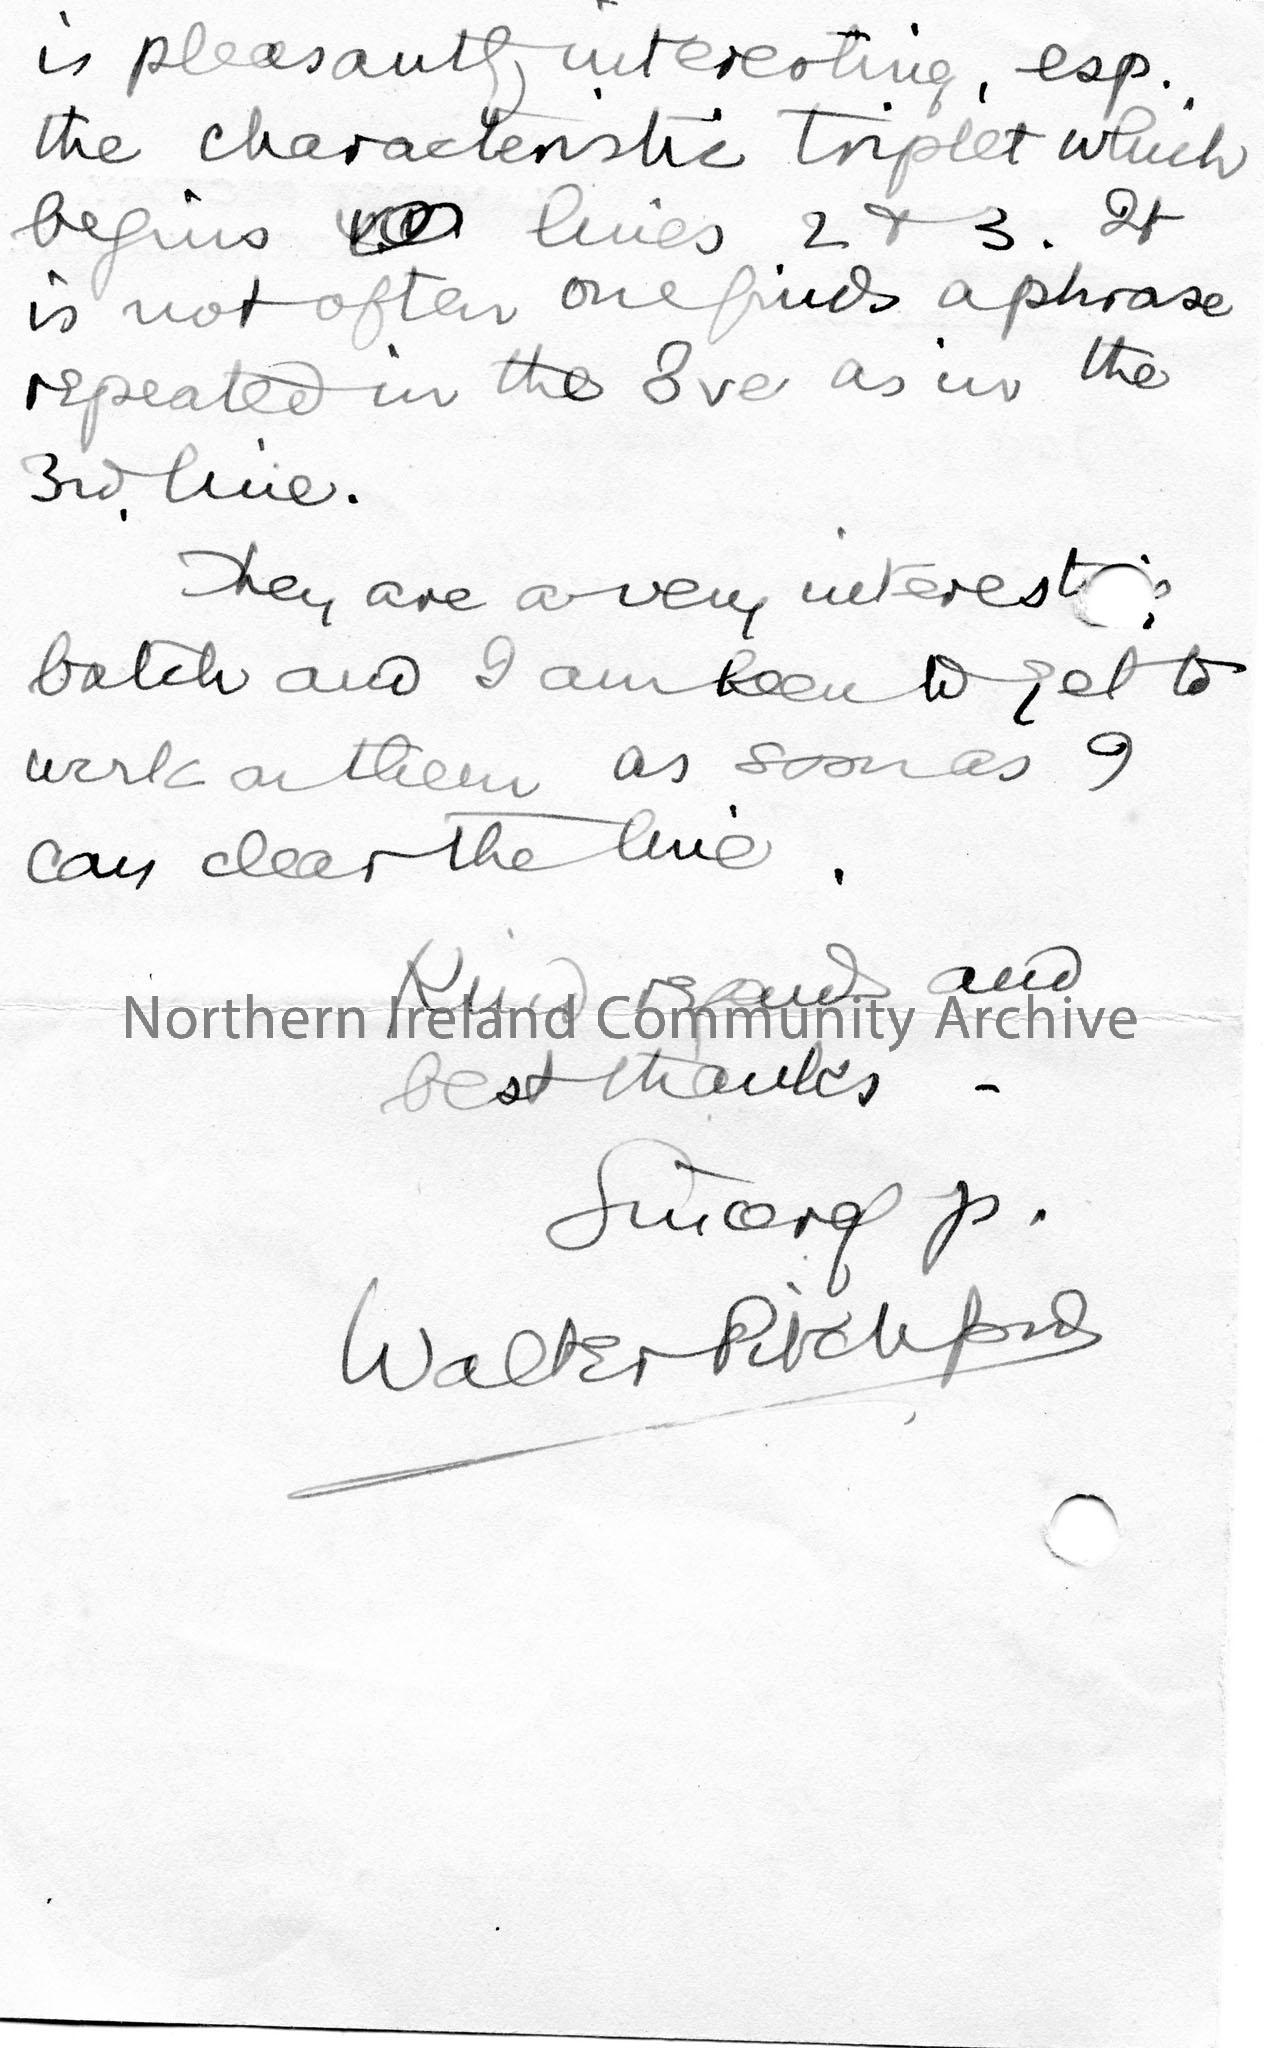 is pleasantly interesting, esp.
the characteristic triplet which
begins lines 2 & 3. It
is not often one finds a phrase
repeated in the 8ve as in the
3rd. line.
They are a very interest
batch and I am keen to get to
work on them as soon as I
can clear the line.
Kind regards and
Northern Ireland Community Archive
best thanks -
Sincerely yrs.
Walter Pitchford